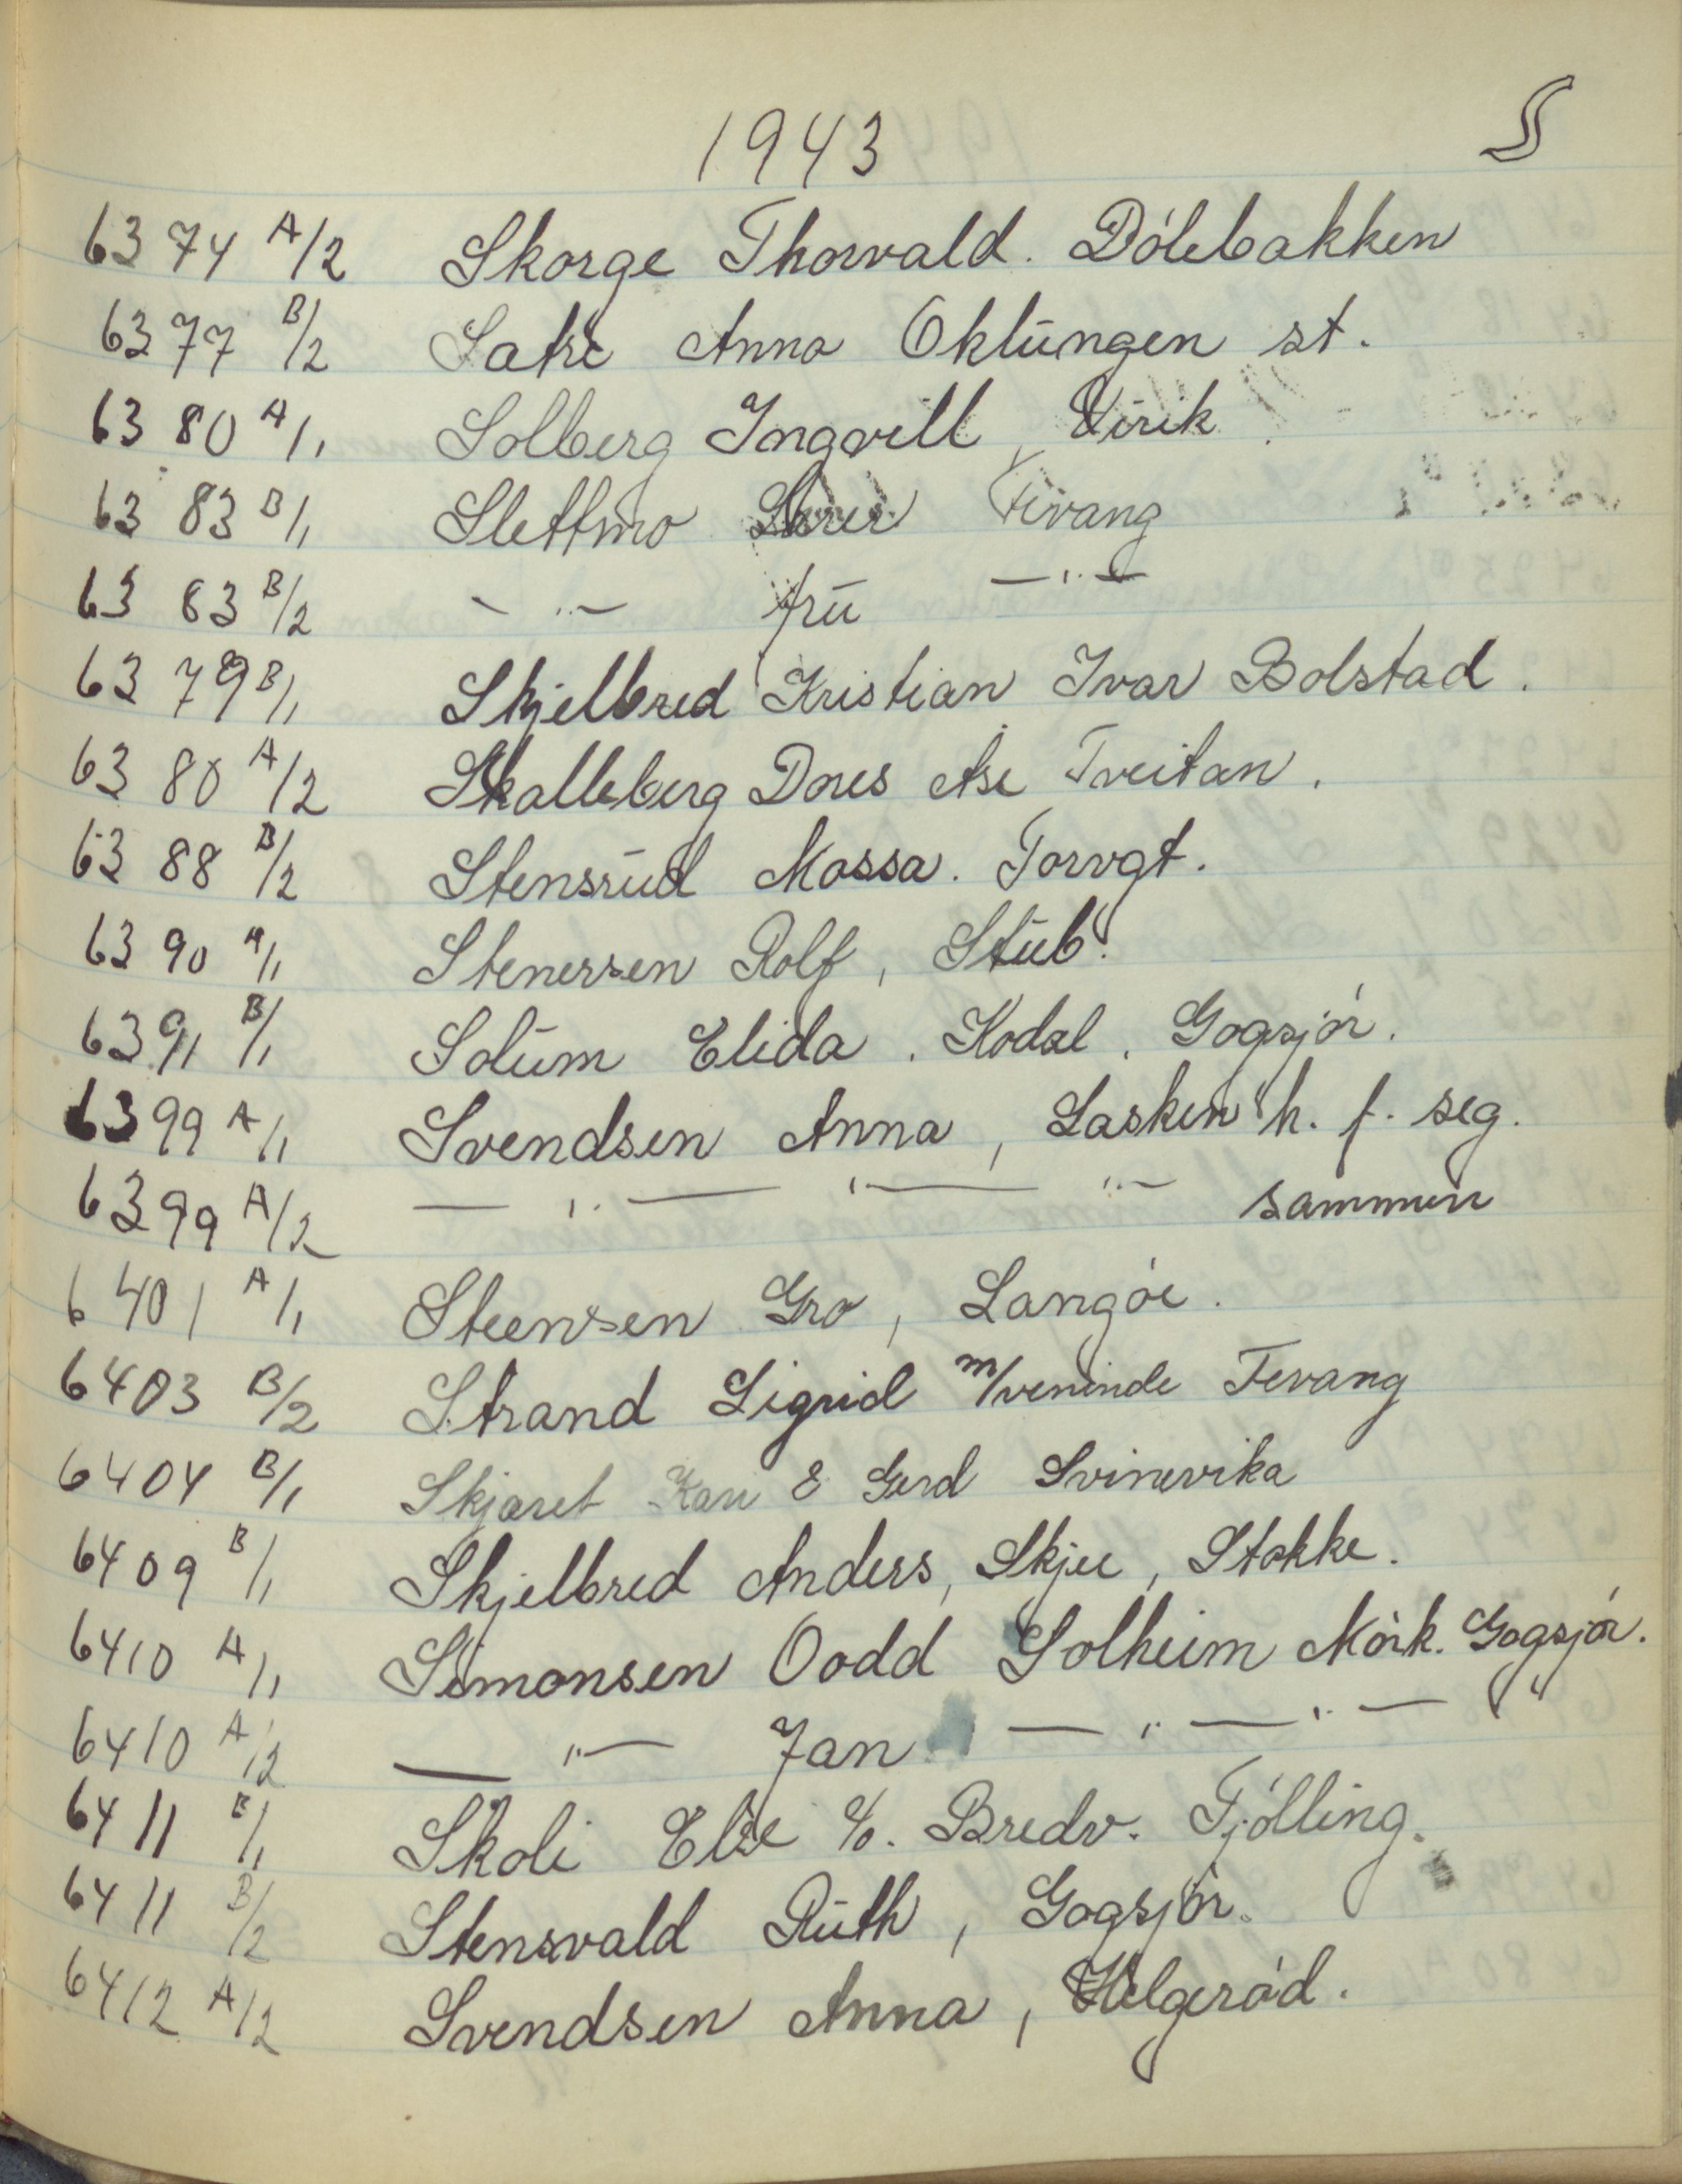 1943 S
6374 A/2 Skorge Thorvald. Dólebakken
6377 B/2 Satre Anna Oklungen st.
6380 A/1 Solberg Ingvill, Virik
6383 B/1 Slettmo Fevang
6383 B/2 — " — fru — " —
6379 B/1 Skjelbred Kristian Ivar Bolstad.
6380 A/2 Skalleberg Dores Åse Tveitan.
6388 B/2 Stensrud Mossa. Torvgt.
6390 A/1 Stenersen Rolf, Stub.
6391 B/1 Solum Elida. Kodal. Gogsjór.
6399 A/1 Svendsen Anna, Lasken h. f. seg.
6399 A/2 — " — " — " — sammen
6401 A/1 Steensen Gro, Langóe.
6403 B/2 Strand Sigrid m/veninde Fevang
6404 B/1 Skjaret Kari & Gerd Svinevika
6409 B/1 Skjelbred Anders, Skjee, Stokke.
6410 A/1 Simonsen Oodd Solheim Mórk. Gogsjór.
6410 A/2 — " — Jan — " — " — "
6411 B/1 Skoli Else c/o. Bredv. Tjólling.
6411 B/2 Stensvald Ruth, Gogsjór.
6412 A/2 Svendsen Anna, Helgeród.